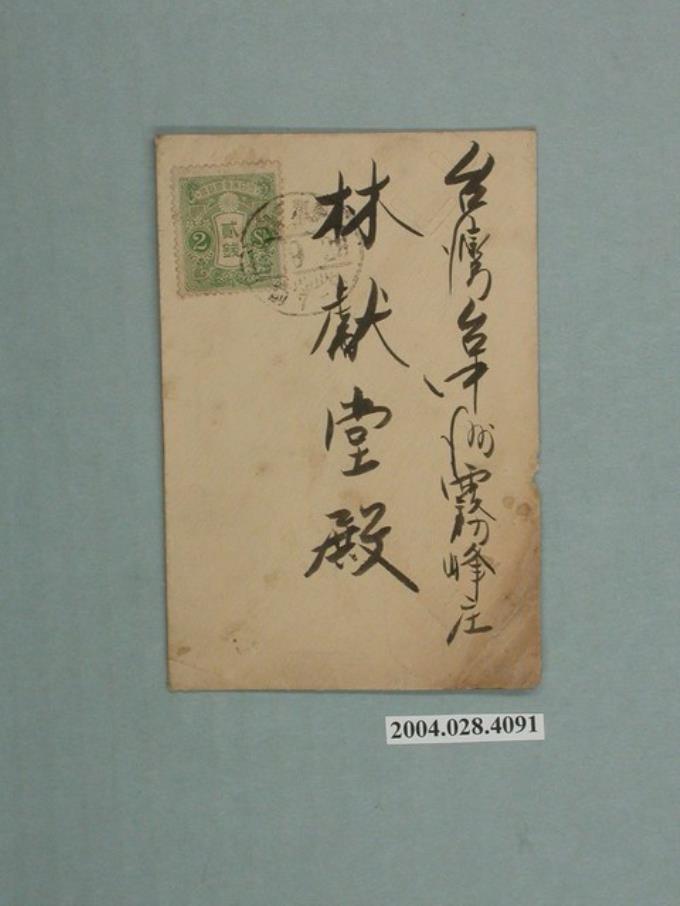 台灣台中州霧峰庄
林獻堂殿
2 貳銭 Sn
2004.028.4091